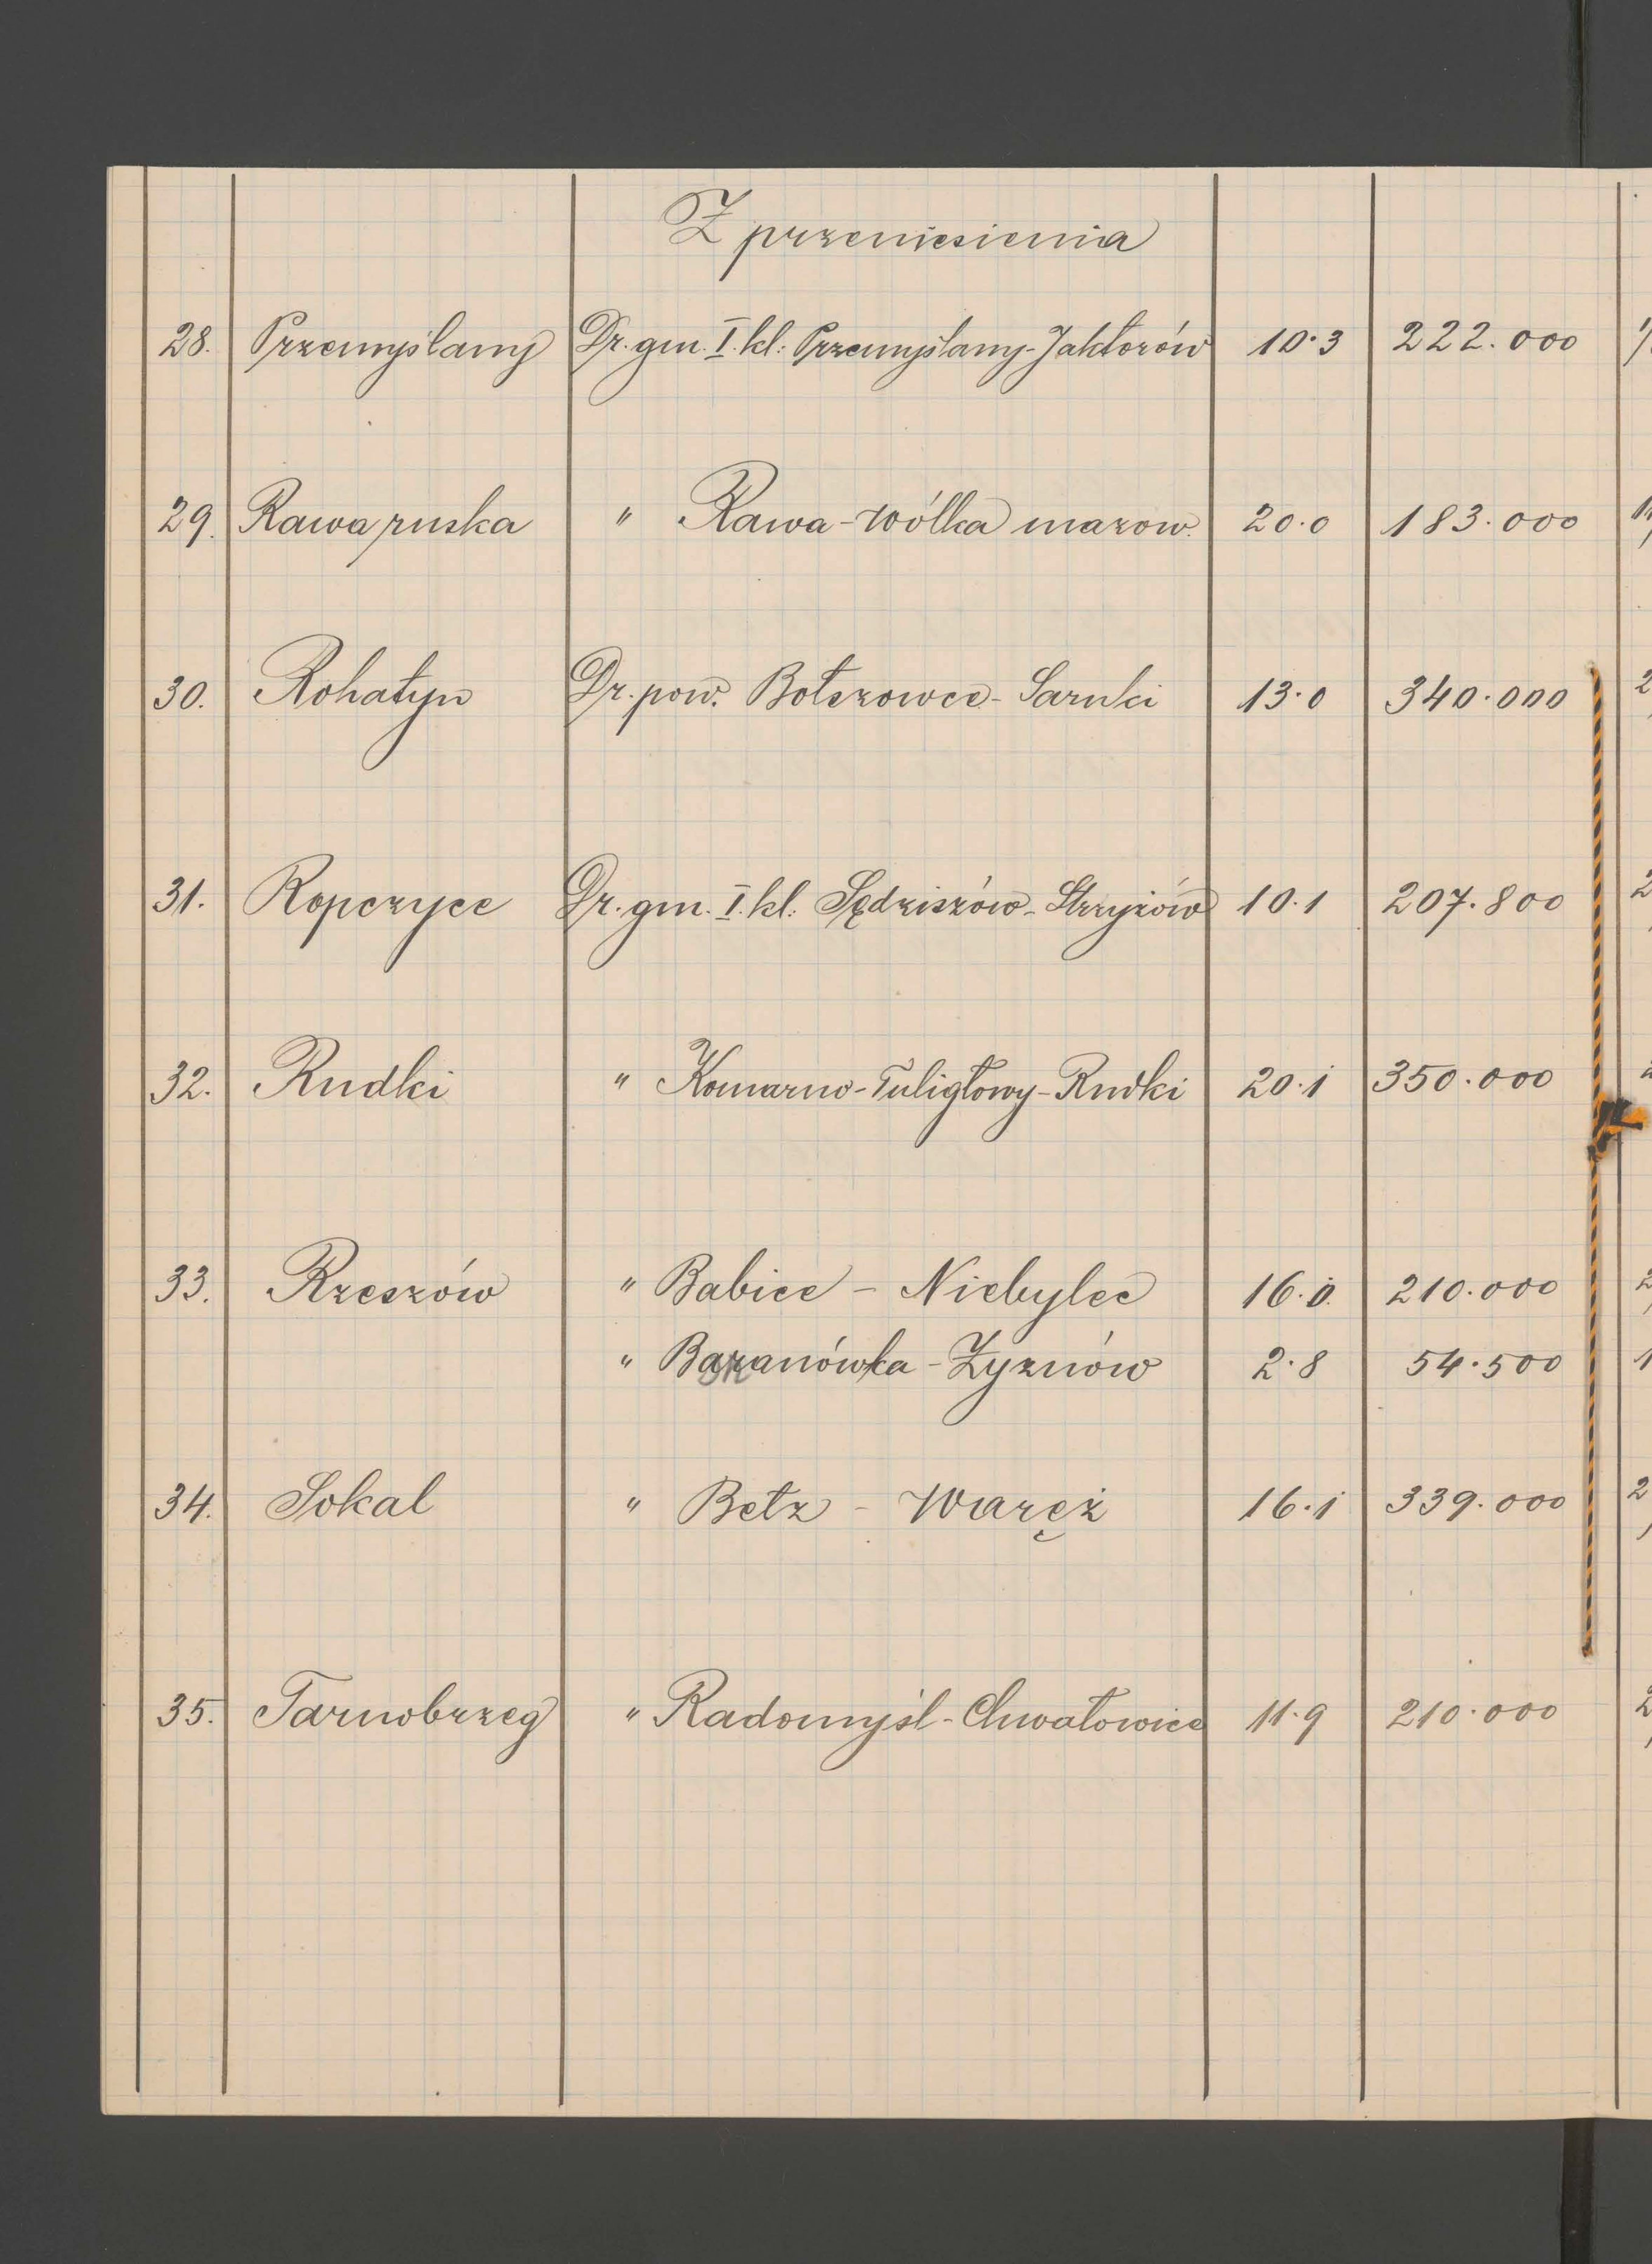 Z przeniesienia
28. Przemyślany Dr. gm. I. kl: Przemyślany-Jaktorów 10·3 222.000
29. Rawa ruska " Rawa-Wólka mazow. 20·0 183.000
30. Rohatyn Dr. pow. Bołszowce-Sarnki 13·0 340.000
31. Ropczyce Dr. gm. I. kl: Sędziszów-Strzyżów 10·1 207.800
32. Rudki " Komarno-Tuligłowy-Rudki 20·1 350.000
33. Rzeszów " Babice - Niebylec 16·0. 210.000
" Baranówka - Zyznów 2·8 54.500
34. Sokal " Bełz - Waręż 16·1 339.000
35. Tarnobrzeg " Radomyśl-Chwałowice 11·9 210.000